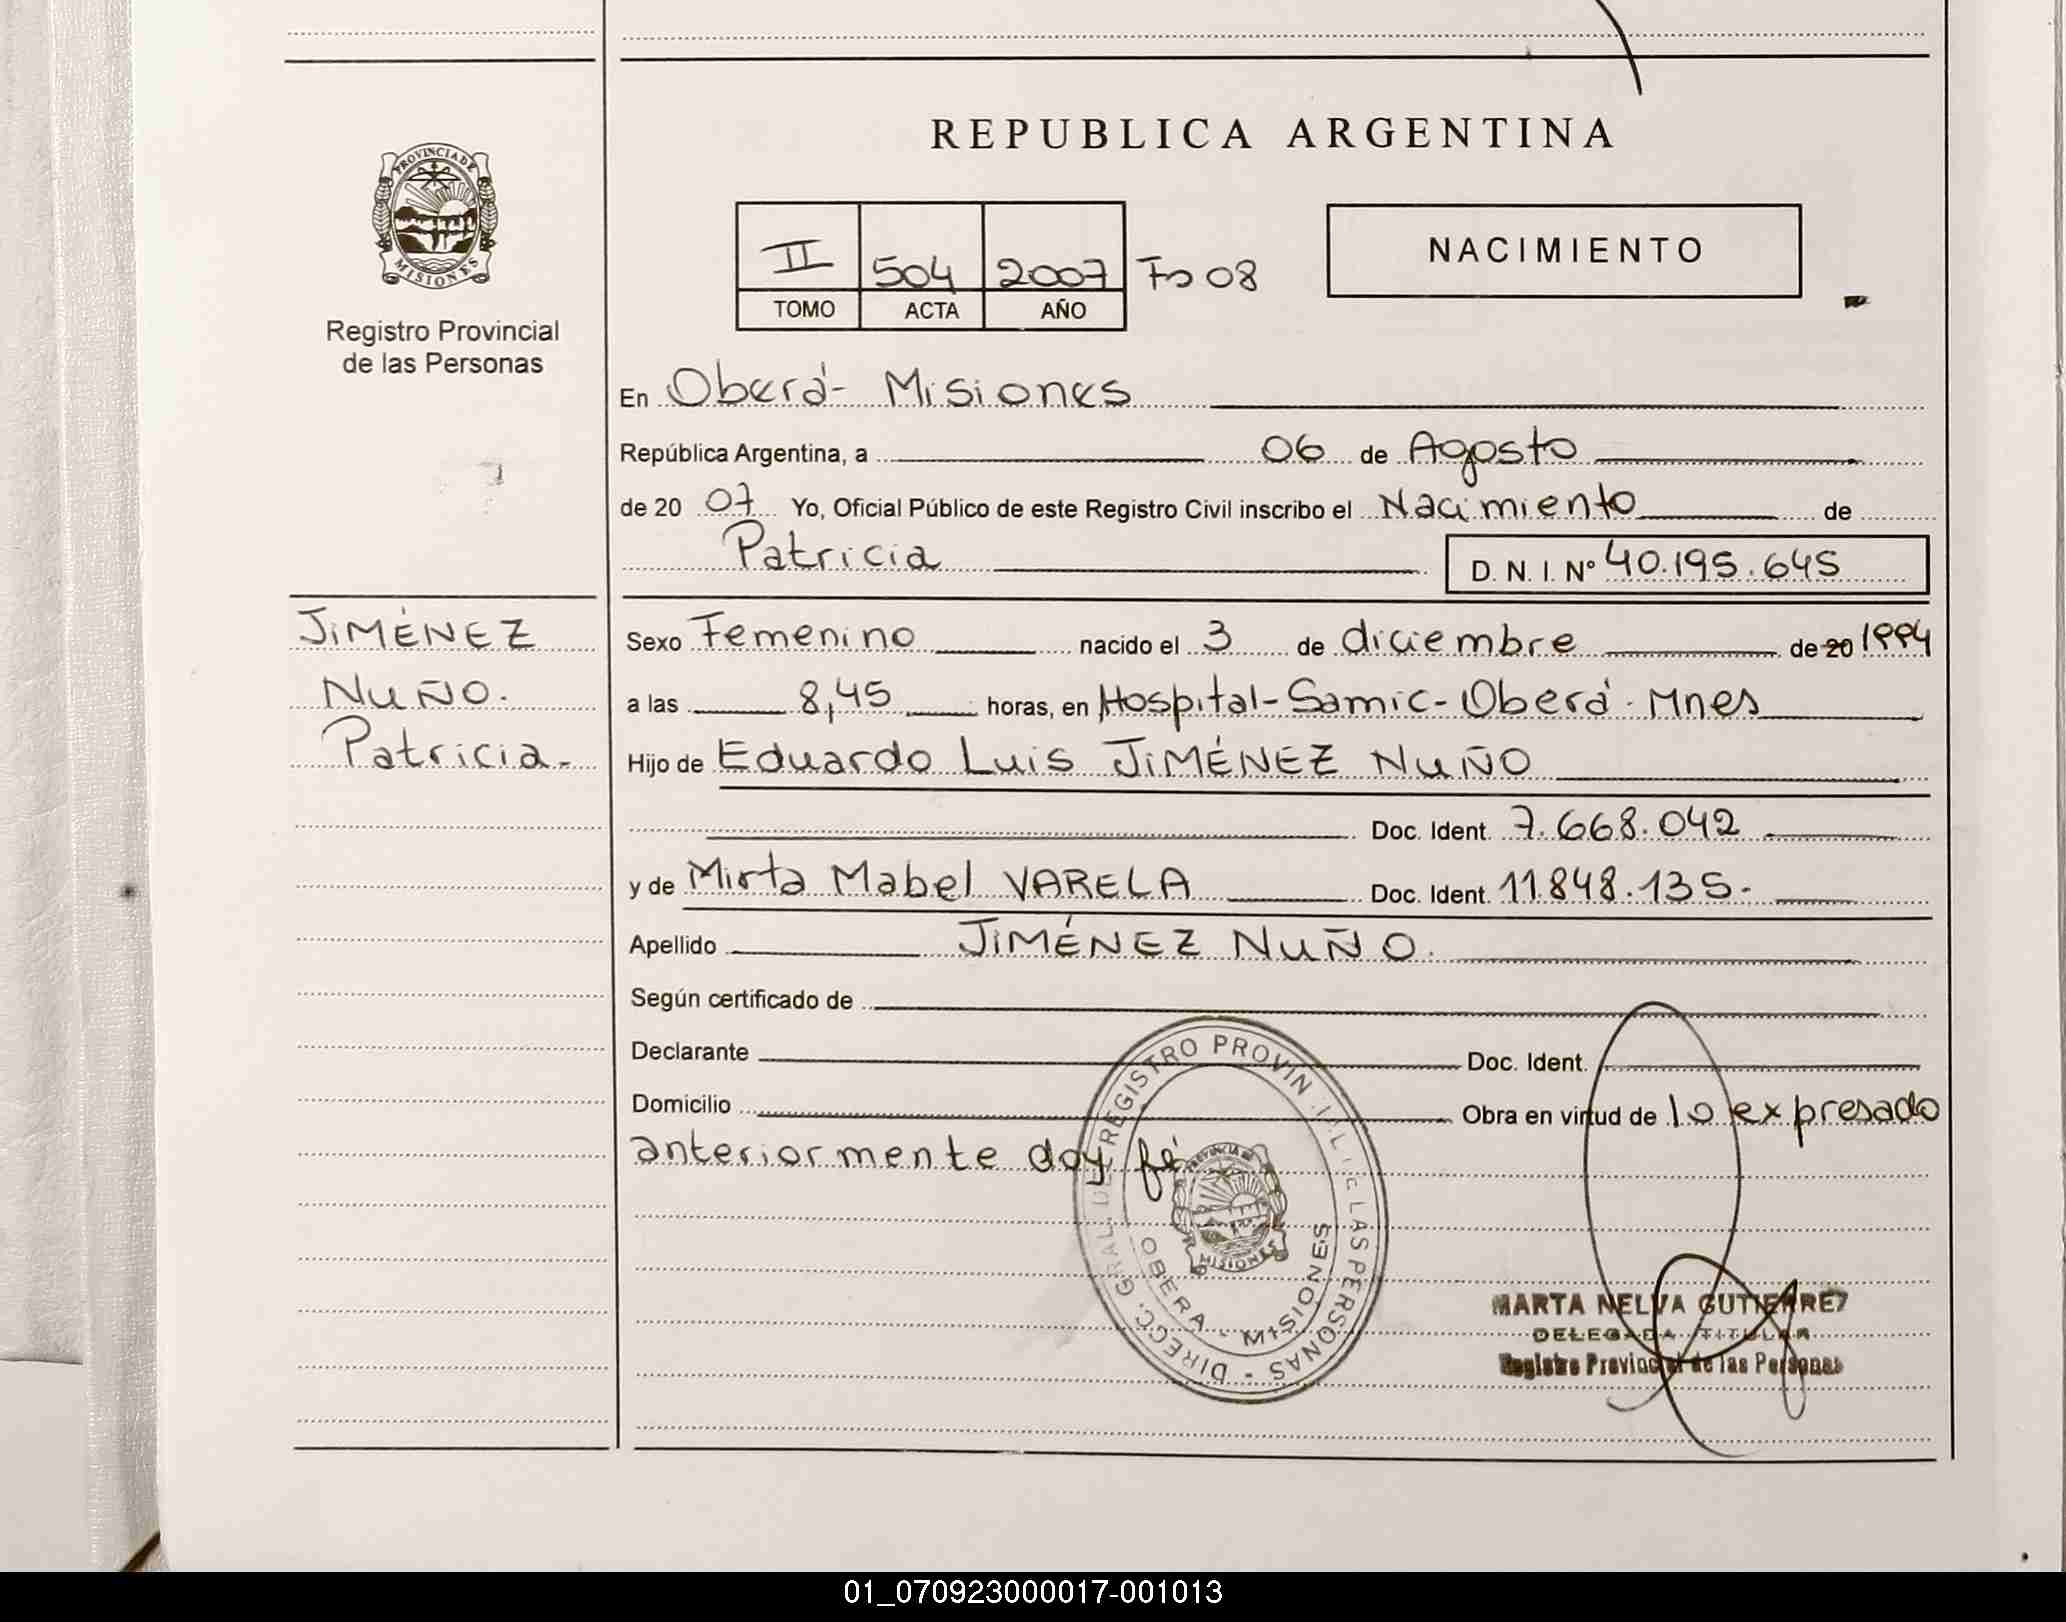 REPUBLICA ARGENTINA
PROVINCIA DE
MISIONES
Registro Provincial
de las Personas
II 504 2007 Fo 08
TOMO ACTA AÑO
NACIMIENTO
En Oberá - Misiones
República Argentina, a 06 de Agosto
de 20 07 Yo, Oficial Público de este Registro Civil inscribo el Nacimiento de
Patricia D. N. I. Nº 40.195.645
JiMÉNEZ
NUÑO.
Patricia.-
Sexo Femenino nacido el 3 de diciembre de 20 1994
a las 8,45 horas, en Hospital-Samic-Oberá. Mnes
Hijo de Eduardo Luis JiMÉNEZ NUÑO
Doc. Ident. 7.668.042
y de Mirta Mabel VARELA Doc. Ident. 11.848.135.-
Apellido JiMÉNEZ NUÑO.
Según certificado de
Declarante Doc. Ident.
Domicilio Obra en virtud de lo expresado
anteriormente doy fé
DIRECC. GRAL. DEL REGISTRO PROVINCIAL DE LAS PERSONAS -
PROVINCIA DE
MISIONES
OBERA - MISIONES
MARTA NELVA GUTIERREZ
DELEGADA TITULAR
Registro Provincial de las Personas
01_070923000017-001013